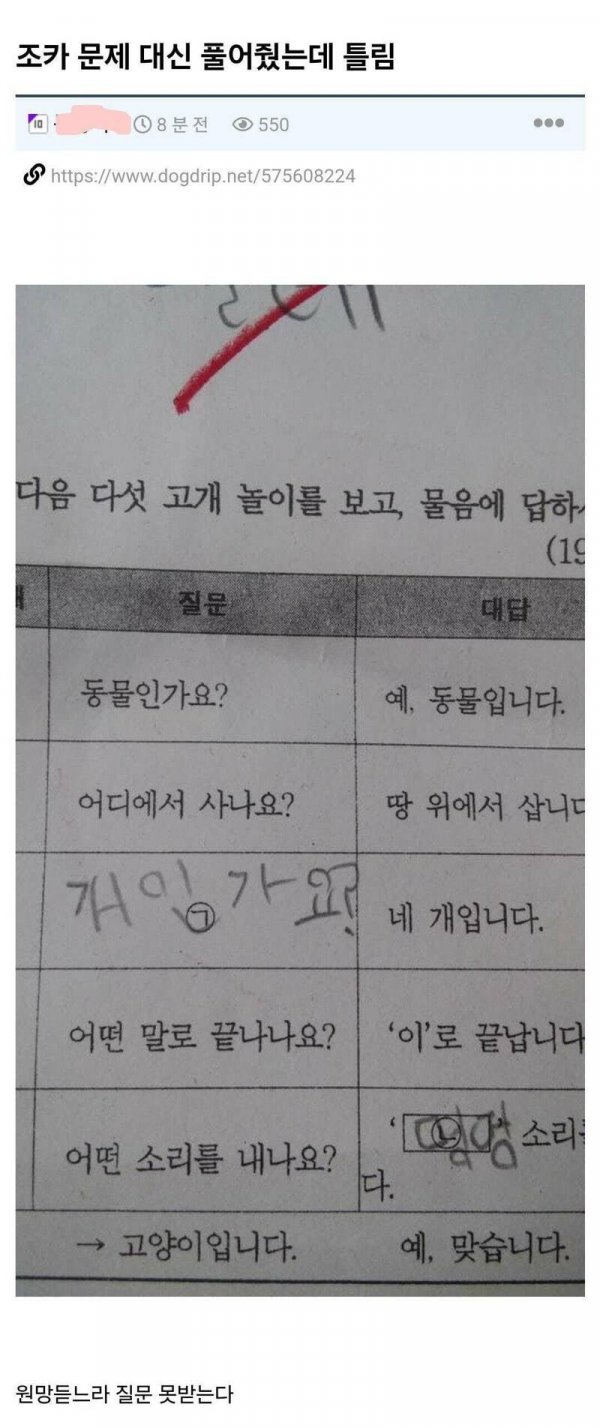 조카 문제 대신 풀어줬는데 틀림
8 분 전 550
https://www.dogdrip.net/575608224
다음 다섯 고개 놀이를 보고, 물음에 답하
(19
질문 대답
동물인가요? 예, 동물입니다.
어디에서 사나요? 땅 위에서 삽니다
개인가요? ㉠ 네 개입니다.
어떤 말로 끝나나요? ‘이’로 끝납니다
어떤 소리를 내나요? ‘ 멍멍 ㉡ ’ 소리를
다.
→ 고양이입니다. 예, 맞습니다.
원망듣느라 질문 못받는다